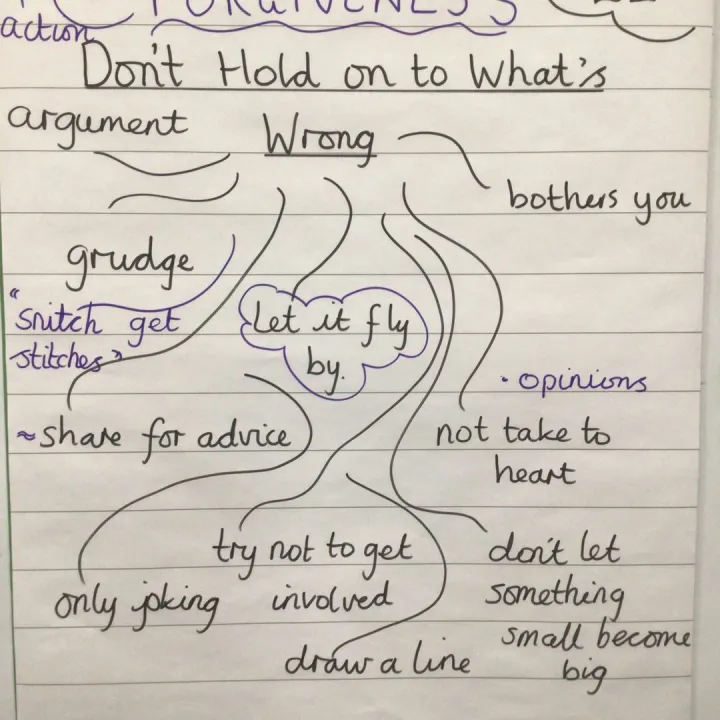 FORGIVENESS
action
Don't Hold on to What's
Wrong
argument
bothers you
grudge
"snitch get
stitches"
Let it fly
by.
• opinions
~share for advice
not take to
heart
try not to get
involved
don't let
something
small become
big
only joking
draw a line